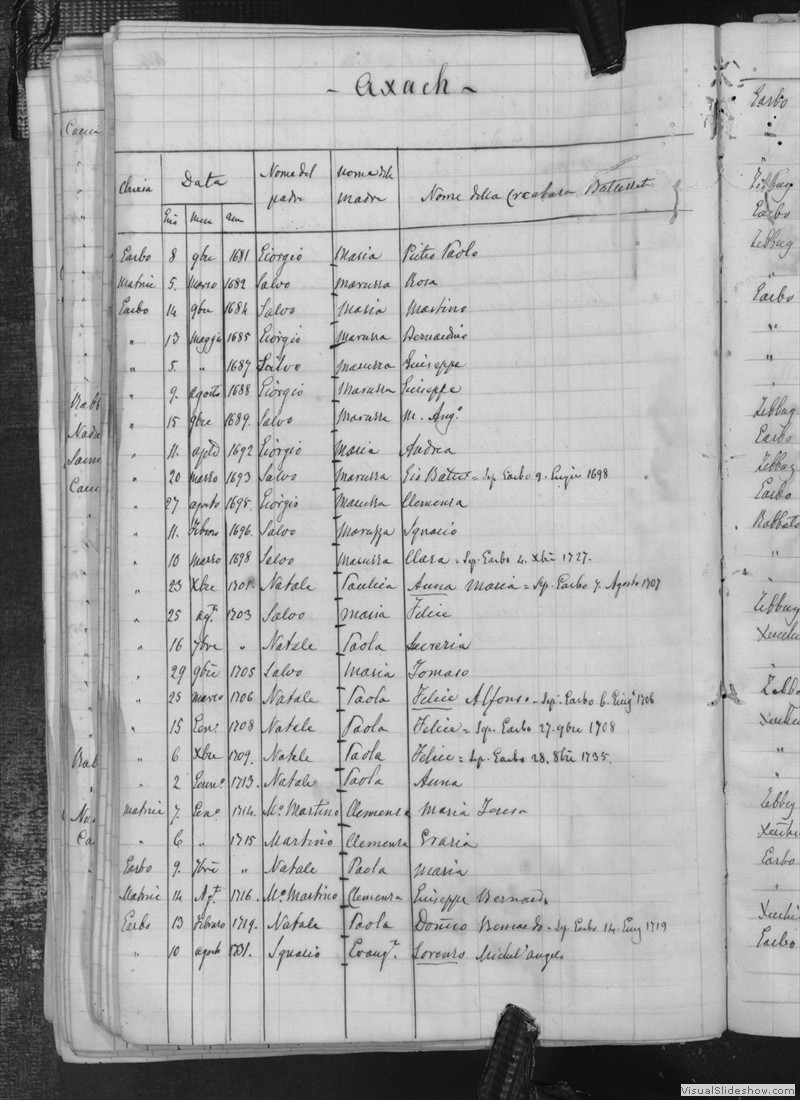 - Axach -
Chiesa Data Nome del padre Nome della madre Nome della Creatura Battessat
Gio Mese Ann
Garbo 8 9bre 1681 Giorgio Maria Pietro Paolo
Matrice 5 Marzo 1682 Salvo Maruzza Rosa
Garbo 14 9bre 1684 Salvo Maria Martino
" 13 Maggio 1685 Giorgio Maruzza Bernardino
" 5 " 1687 Salvo Maruzza Giuseppe
" 9 agosto 1688 Giorgio Maruzza Giuseppe
" 15 9bre 1689 Salvo Maruzza M. Ang.
" 11 1692 Giorgio Maria Andrea
" 20 marzo 1693 Salvo Maruzza Gio Batta = Sep. Garbo 9 1698
" 27 agosto 1695 Giorgio Maruzza Clemenza
" 11 Febraro 1696 Salvo Maruzza Ignazio
" 10 marzo 1698 Salvo Maruzza Clara = Sep. Garbo 4. Xbre 1727.
" 23 Xbre 1701 Natale Paulica Anna Maria = Sep. Garbo 7. Agosto 1707
" 25 ag.t 1703 Salvo Maria Felice
" 16 7bre " Natale Paola Lucrezia
" 29 9bre 1705 Salvo Maria Tomaso
" 25 marzo 1706 Natale Paola Felice Alfonso = Sep. Garbo 6. Giug.o 1706
" 15 Gen.o 1708 Natale Paola Felice = Sep. Garbo 27. 9bre 1708
" 6 Xbre 1709. Natale Paola Felice = Sep. Garbo 28. 8bre 1735.
" 2 Genn.o 1713. Natale Paola Anna
Matrice 7. Gen.o 1714. M.o Martino Clemenza Maria Teresa
" 6 " 1715 Martino Clemenza Grazia
Garbo 9. 7bre " Natale Paola Maria
Matrice 14 Ag.t 1716. M.o Martino Clemenza Giuseppe Bernardo
Garbo 13 Febraro 1719. Natale Paola Dom.co Bernardo = Sep. Garbo 14. Giug 1719
" 10 agosto 1731. Ignazio Evang.ta Lorenzo Michel'angelo
Garbo
Zebbug
Garbo
Zebbug
"
Garbo
"
"
Zebbug
Garbo
Zebbug
Garbo
Rabbato
"
"
Zebbug
"
"
Zebbug
Garbo
"
Garbo
VisualSlideshow.com